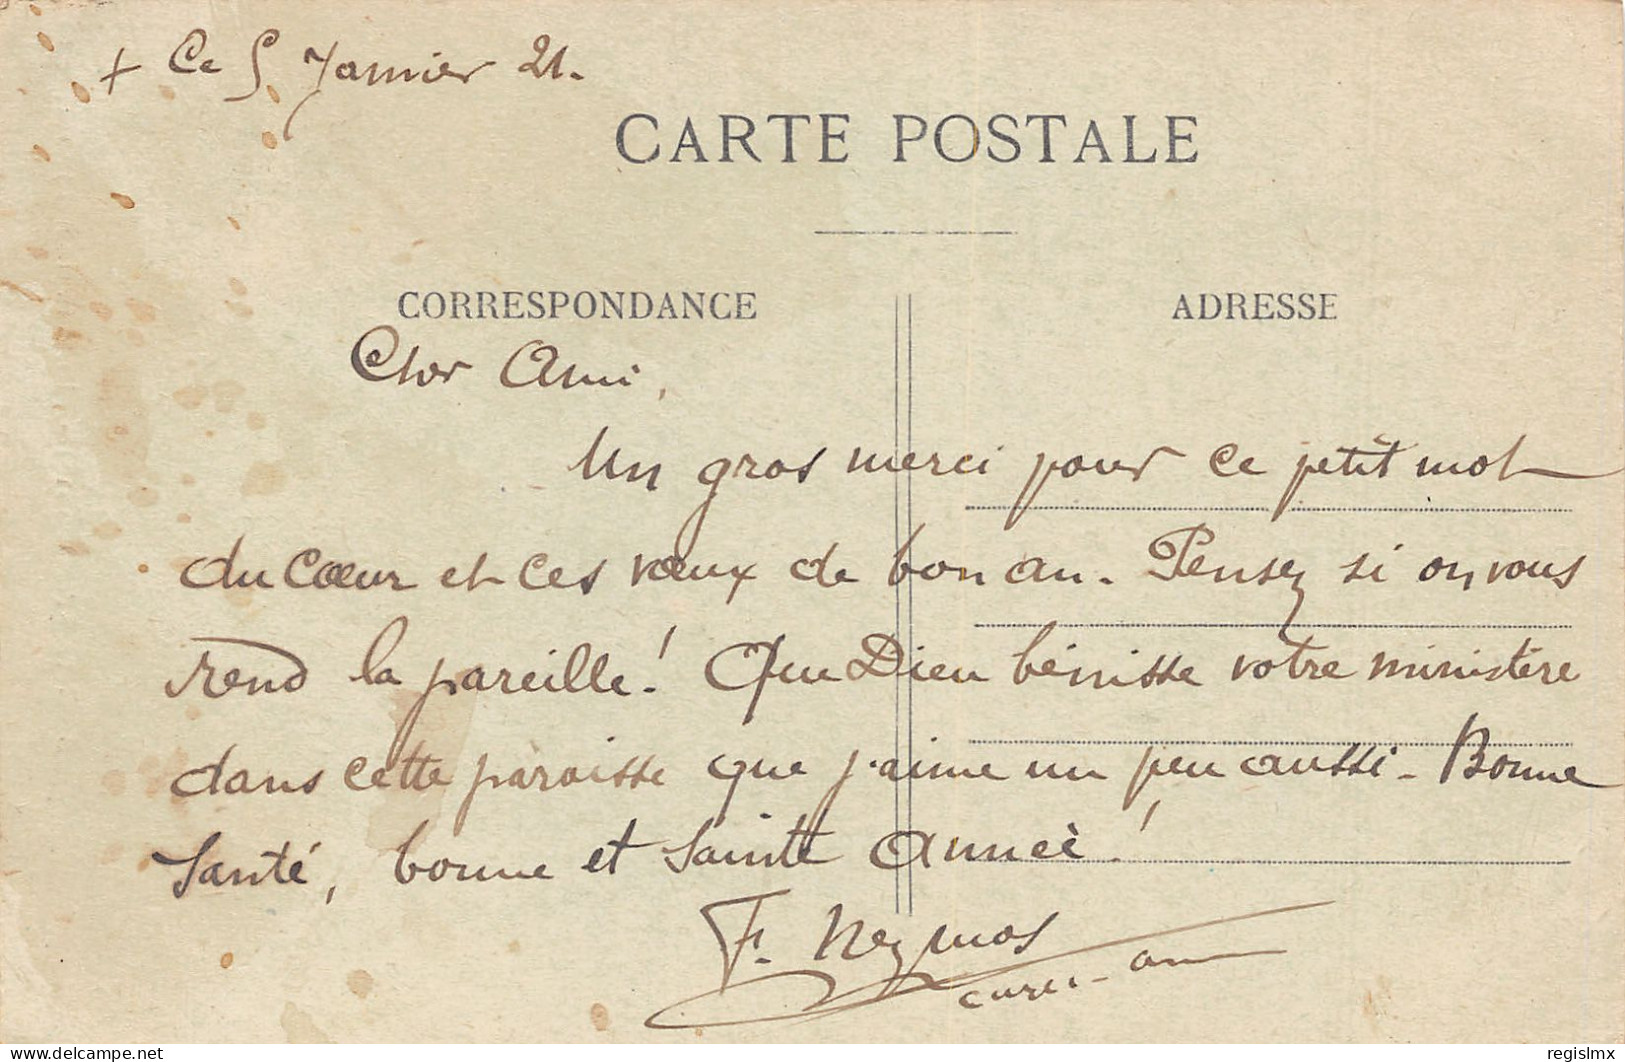 + Ce 5 Janvier 21.
CARTE POSTALE
CORRESPONDANCE
ADRESSE
Cher Ami,
Un gros merci pour ce petit mot
du cœur et ces vœux de bon an. Pensez si on vous
rend la pareille! Que Dieu bénisse votre ministère
dans cette paroisse que j'aime un peu aussi - Bonne
Santé, bonne et Sainte Année!
F.
regislmx